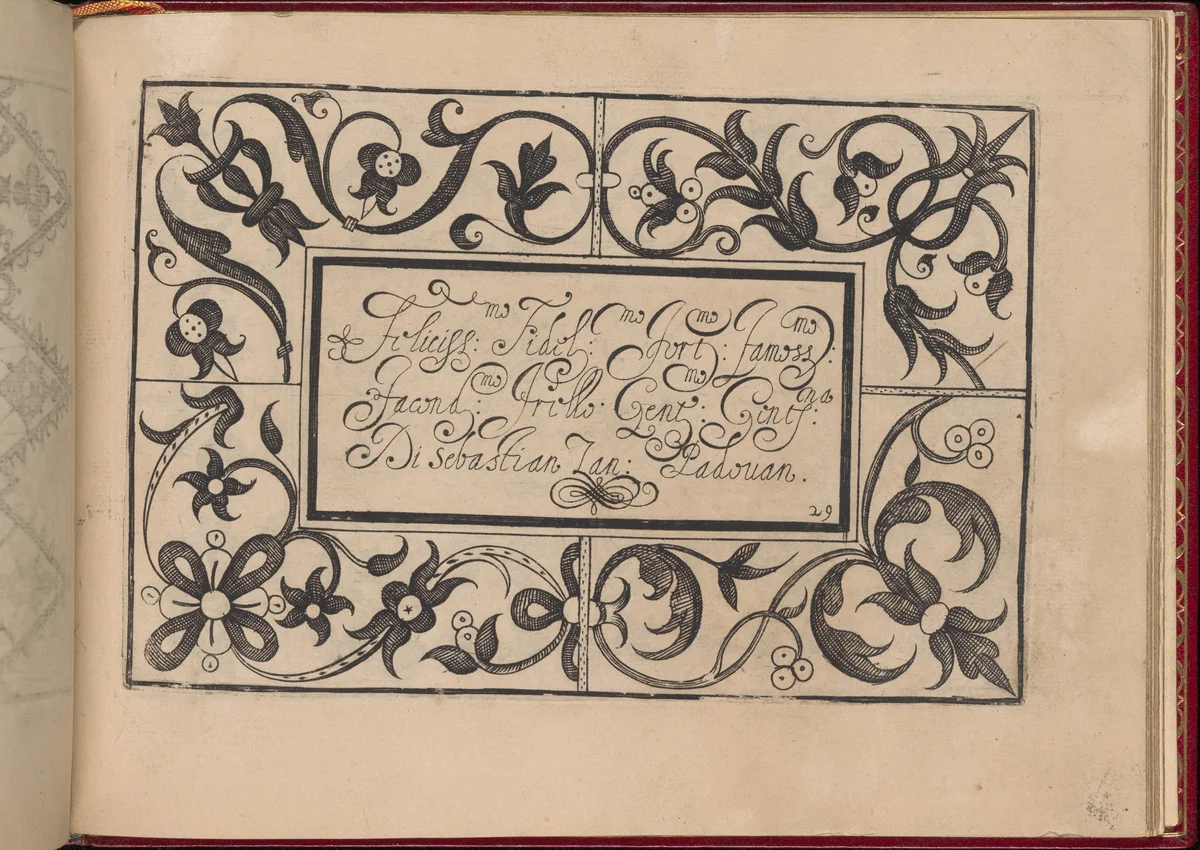 Feliciss:mo Fidel:mo Fort:mo Famoss:mo
Facond:mo Jrillo. Gent:mo Gentˢ:na
Di Sebastian Zan: Padouan.
29